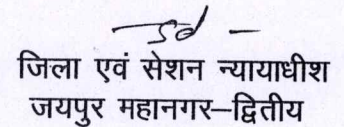 – sd –
जिला एवं सेशन न्यायाधीश
जयपुर महानगर–द्वितीय